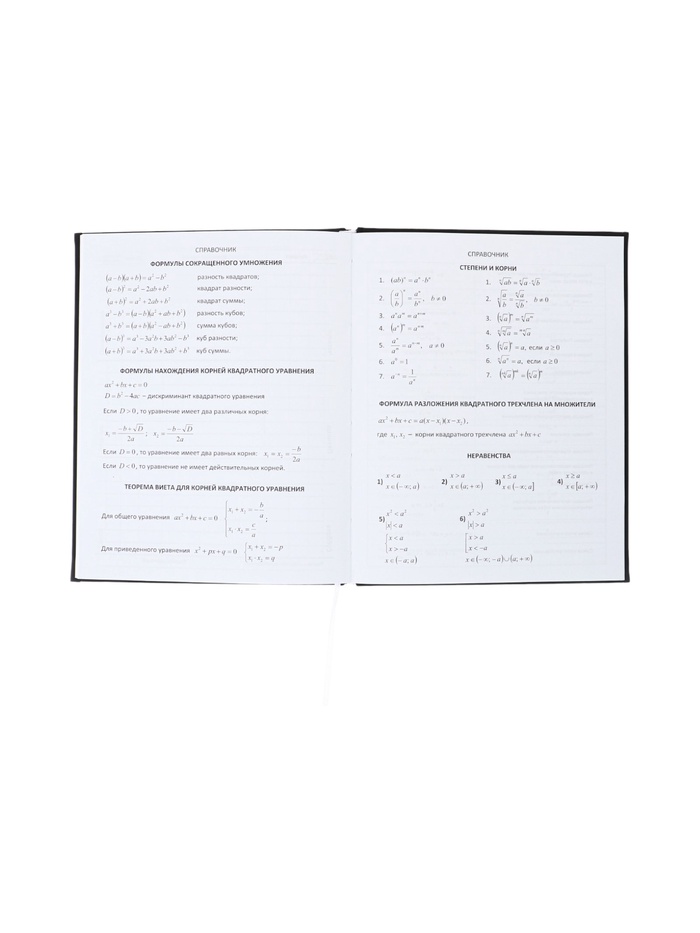 СПРАВОЧНИК
ФОРМУЛЫ СОКРАЩЕННОГО УМНОЖЕНИЯ
(a−b)(a+b)=a²−b² разность квадратов;
(a−b)²=a²−2ab+b² квадрат разности;
(a+b)²=a²+2ab+b² квадрат суммы;
a³−b³=(a−b)(a²+ab+b²) разность кубов;
a³+b³=(a+b)(a²−ab+b²) сумма кубов;
(a−b)³=a³−3a²b+3ab²−b³ куб разности;
(a+b)³=a³+3a²b+3ab²+b³ куб суммы.
ФОРМУЛЫ НАХОЖДЕНИЯ КОРНЕЙ КВАДРАТНОГО УРАВНЕНИЯ
ax²+bx+c=0
D=b²−4ac – дискриминант квадратного уравнения
Если D>0, то уравнение имеет два различных корня:
x₁=(−b+√D)/2a; x₂=(−b−√D)/2a
Если D=0, то уравнение имеет два равных корня: x₁=x₂=−b/2a
Если D<0, то уравнение не имеет действительных корней.
ТЕОРЕМА ВИЕТА ДЛЯ КОРНЕЙ КВАДРАТНОГО УРАВНЕНИЯ
Для общего уравнения ax²+bx+c=0 { x₁+x₂=−b/a
x₁·x₂=c/a ;
Для приведенного уравнения x²+px+q=0 { x₁+x₂=−p
x₁·x₂=q
СПРАВОЧНИК
СТЕПЕНИ И КОРНИ
1. (ab)ⁿ=aⁿ·bⁿ
2. (a/b)ⁿ=aⁿ/bⁿ, b≠0
3. aⁿaᵐ=aⁿ⁺ᵐ
4. (aⁿ)ᵐ=aⁿ·ᵐ
5. aⁿ/aᵐ=aⁿ⁻ᵐ, a≠0
6. a⁰=1
7. a⁻ⁿ=1/aⁿ
1. ⁿ√ab=ⁿ√a·ⁿ√b
2. ⁿ√(a/b)=ⁿ√a/ⁿ√b, b≠0
3. (ⁿ√a)ᵐ=ⁿ√aᵐ
4. ᵐ√ⁿ√a=ᵐⁿ√a
5. (ⁿ√a)ⁿ=a, если a≥0
6. ⁿ√aⁿ=a, если a≥0
7.
ФОРМУЛА РАЗЛОЖЕНИЯ КВАДРАТНОГО ТРЕХЧЛЕНА НА МНОЖИТЕЛИ
ax²+bx+c=a(x−x₁)(x−x₂),
где x₁, x₂ – корни квадратного трехчлена ax²+bx+c
НЕРАВЕНСТВА
1) x<a
x∈(−∞; a)
2) x>a
x∈(a; +∞)
3) x≤a
x∈(−∞; a]
4) x≥a
x∈[a; +∞)
5) x²<a²
|x|<a
{ x<a
x>−a
x∈(−a; a)
6) x²>a²
|x|>a
[ x>a
x<−a
x∈(−∞; −a)∪(a; +∞)